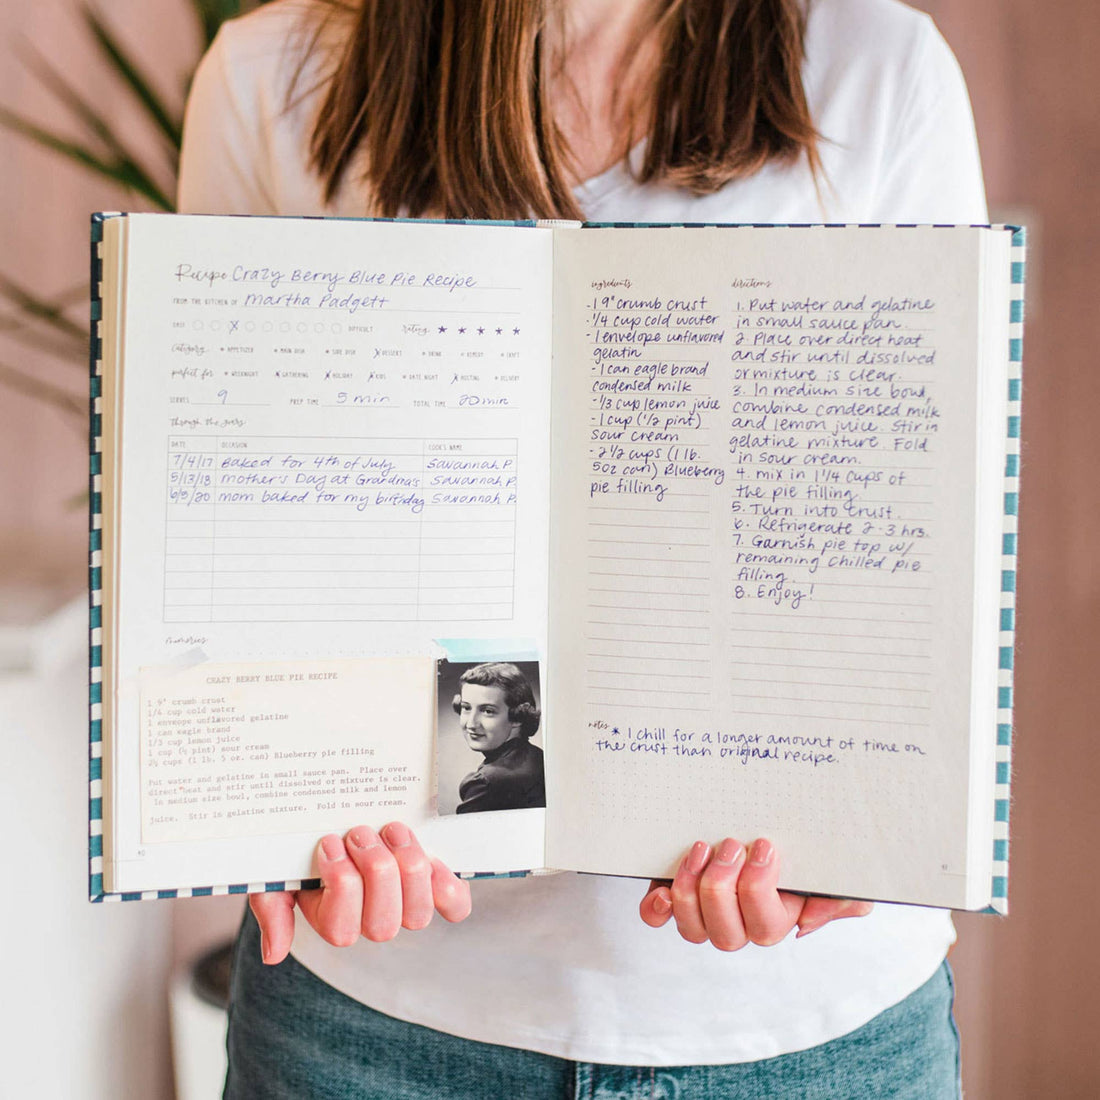 Recipe Crazy Berry Blue Pie Recipe
FROM THE KITCHEN OF Martha Padgett
EASY DIFFICULT rating
Category APPETIZER MAIN DISH SIDE DISH DESSERT DRINK REMEDY CRAFT
perfect for WEEKNIGHT GATHERING HOLIDAY KIDS DATE NIGHT HOSTING DELIVERY
SERVES 9 PREP TIME 5 min TOTAL TIME 20 min
through the years
DATE OCCASION COOK'S NAME
7/4/17 Baked for 4th of July Savannah P.
5/13/18 Mother's Day at Grandma's Savannah P.
mom baked for my birthday Savannah P.
memories
CRAZY BERRY BLUE PIE RECIPE
1 9" crumb crust
1/4 cup cold water
1 enveope unflavored gelatine
1 can eagle brand
1/3 cup lemon juice
1 cup (½ pint) sour cream
2½ cups (1 lb. 5 oz. can) Blueberry pie filling
Put water and gelatine in small sauce pan. Place over
direct heat and stir until dissolved or mixture is clear.
In medium size bowl, combine condensed milk and lemon
juice. Stir in gelatine mixture. Fold in sour cream.
40
ingredients
- 1 9" crumb crust
- 1/4 cup cold water
- 1 envelope unflavored
gelatin
- 1 can eagle brand
condensed milk
- 1/3 cup lemon juice
- 1 cup (1/2 pint)
sour cream
- 2 1/2 cups (1 lb.
5oz can) Blueberry
pie filling
directions
1. Put water and gelatine
in small sauce pan.
2. Place over direct heat
and stir until dissolved
or mixture is clear.
3. In medium size bowl,
combine condensed milk
and lemon juice. Stir in
gelatine mixture. Fold
in sour cream.
4. mix in 1 1/4 cups of
the pie filling.
5. Turn into crust.
6. Refrigerate 2-3 hrs.
7. Garnish pie top w/
remaining chilled pie
filling.
8. Enjoy!
notes
* I chill for a longer amount of time on
the crust than original recipe.
41